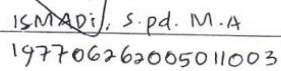 ISMADI, S.pd. M.A
197706262005011003